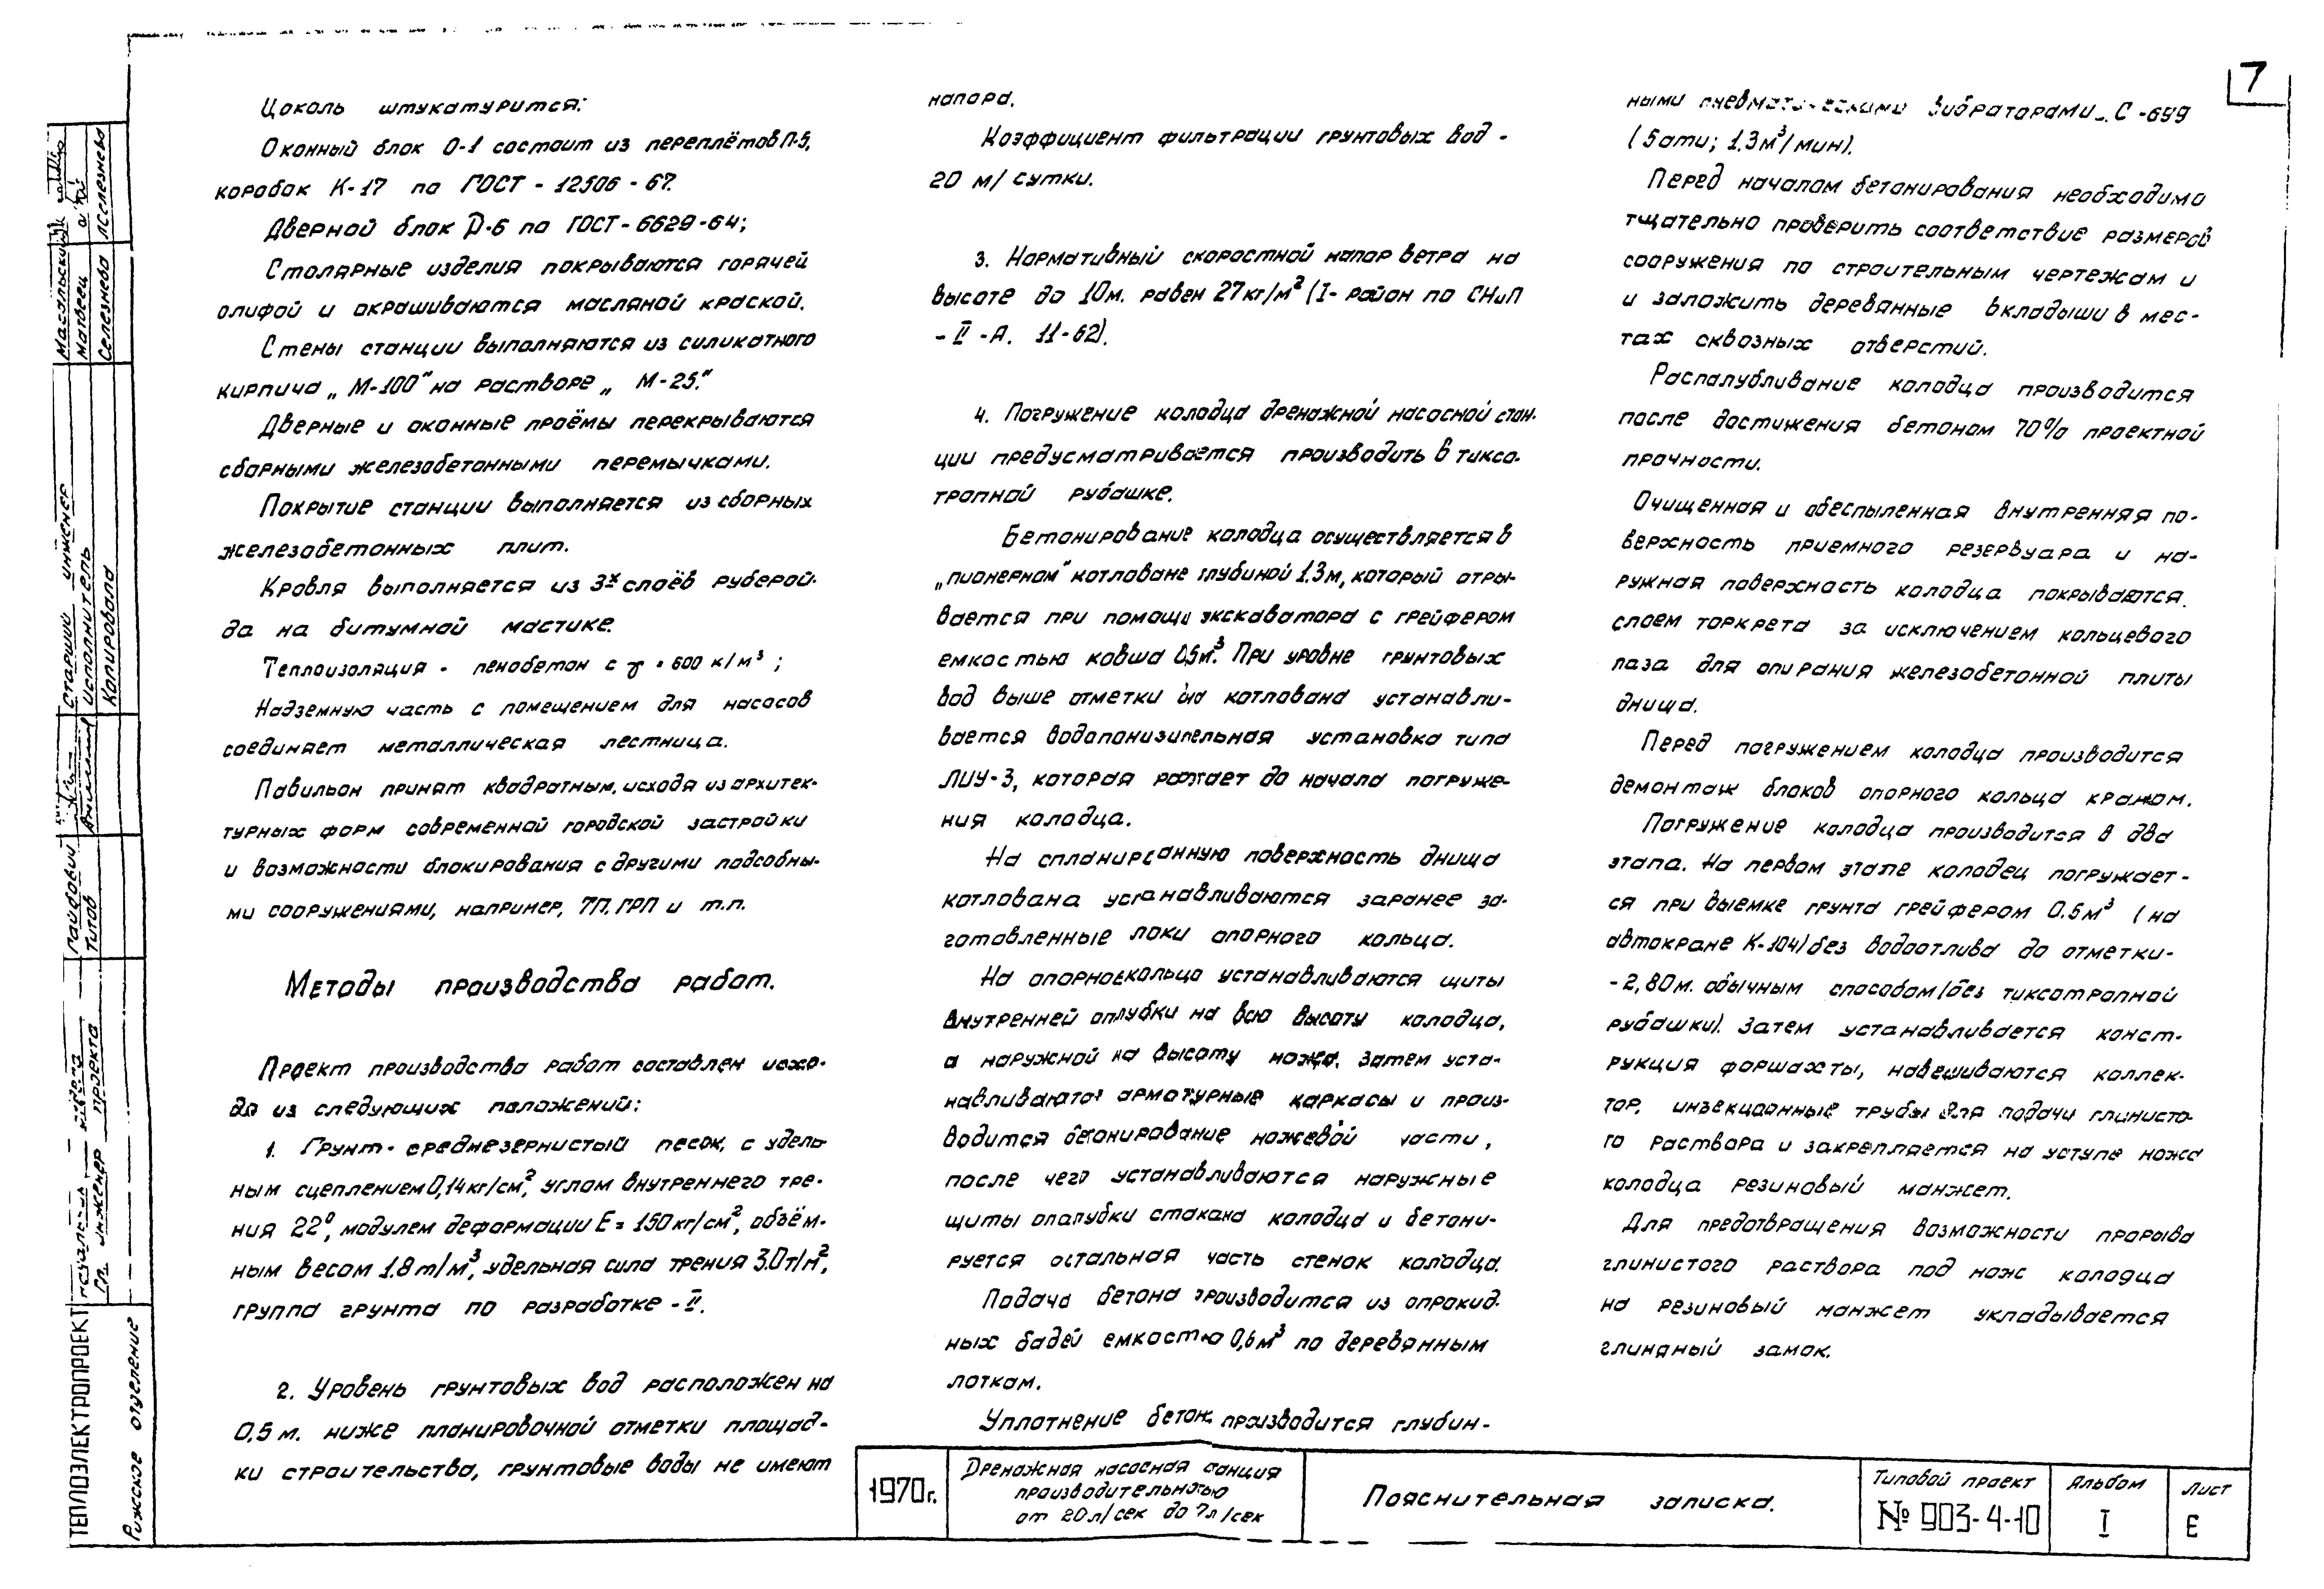 7
Цоколь штукатурится.
Оконный блок О-1 состоит из переплётов П-5,
коробок К-17 по ГОСТ - 12506 - 67.
Дверной блок Д-6 по ГОСТ - 6629-64;
Столярные изделия покрываются горячей
олифой и окрашиваются масляной краской.
Стены станции выполняются из силикатного
кирпича „ М-100" на растворе „ М-25."
Дверные и оконные проёмы перекрываются
сборными железобетонными перемычками.
Покрытие станции выполняется из сборных
железобетонных плит.
Кровля выполняется из 3х слоёв руберой-
да на битумной мастике.
Теплоизоляция - пенобетон с γ = 600 к/м³ ;
Надземную часть с помещением для насосов
соединяет металлическая лестница.
Павильон принят квадратным, исходя из архитек-
турных форм современной городской застройки
и возможности блокирования с другими подсобны-
ми сооружениями, например, ТП, ГРП и т.п.
Методы производства работ.
Проект производства работ составлен исхо-
дя из следующих положений:
1. Грунт - среднезернистый песок, с удель-
ным сцеплением 0,14 кг/см², углом внутреннего тре-
ния 22°, модулем деформации Е = 150 кг/см², объём-
ным весом 1.8 т/м³, удельная сила трения 3.0 т/м²,
группа грунта по разработке - II.
2. Уровень грунтовых вод расположен на
0,5 м. ниже планировочной отметки площад-
ки строительства, грунтовые воды не имеют
напора.
Коэффициент фильтрации грунтовых вод -
20 м/сутки.
3. Нормативный скоростной напор ветра на
высоте до 10м. равен 27 кг/м² (I- район по СНиП
- II - А. 11-62).
4. Погружение колодца дренажной насосной стан-
ции предусматривается производить в тиксо-
тропной рубашке.
Бетонирование колодца осуществляется в
„пионерном" котловане глубиной 1.3м, который отры-
вается при помощи экскаватора с грейфером
емкостью ковша 0,5м³. При уровне грунтовых
вод выше отметки дна котлована устанавли-
вается водопонизительная установка типа
ЛИУ-3, которая работает до начала погруже-
ния колодца.
На спланированную поверхность днища
котлована устанавливаются заранее за-
готовленные локи опорного кольца.
На опорное кольцо устанавливаются щиты
внутренней опалубки на всю высоту колодца,
а наружной на высоту ножа. Затем уста-
навливаются арматурные каркасы и произ-
водится бетонирование ножевой части,
после чего устанавливаются наружные
щиты опалубки стакана колодца и бетони-
руется остальная часть стенок колодца.
Подача бетона производится из опрокид-
ных бадей емкостью 0,6м³ по деревянным
лоткам.
Уплотнение бетона производится глубин-
ными пневматическими вибраторами С -699
( 5 ати; 1.3м³/мин).
Перед началом бетонирования необходимо
тщательно проверить соответствие размеров
сооружения по строительным чертежам и
и заложить деревянные вкладыши в мес-
тах сквозных отверстий.
Распалубливание колодца производится
после достижения бетоном 70% проектной
прочности.
Очищенная и обеспыленная внутренняя по-
верхность приемного резервуара и на-
ружная поверхность колодца покрываются
слоем торкрета за исключением кольцевого
паза для опирания железобетонной плиты
днища.
Перед погружением колодца производится
демонтаж блоков опорного кольца краном.
Погружение колодца производится в два
этапа. На первом этапе колодец погружает-
ся при выемке грунта грейфером 0.5м³ (на
автокране К-104) без водоотлива до отметки-
-2,80м. обычным способом (без тиксотропной
рубашки). Затем устанавливается конст-
рукция форшахты, навешиваются коллек-
тор, инъекционные трубы для подачи глинисто-
го раствора и закрепляется на уступе ножа
колодца резиновый манжет.
Для предотвращения возможности прорыва
глинистого раствора под нож колодца
на резиновый манжет укладывается
глиняный замок.
1970г.
Дренажная насосная станция
производительностью
от 20 л/сек до 7л/сек
Пояснительная записка.
Типовой проект
№ 903-4-10
Альбом
I
Лист
Е
ТЕПЛОЭЛЕКТРОПРОЕКТ
Рижское отделение
Гл. инженер проекта
Гайцбовий
Титов
Старший инженер
Исполнитель
Копировала
Масальский
Матвеец
Селезнева